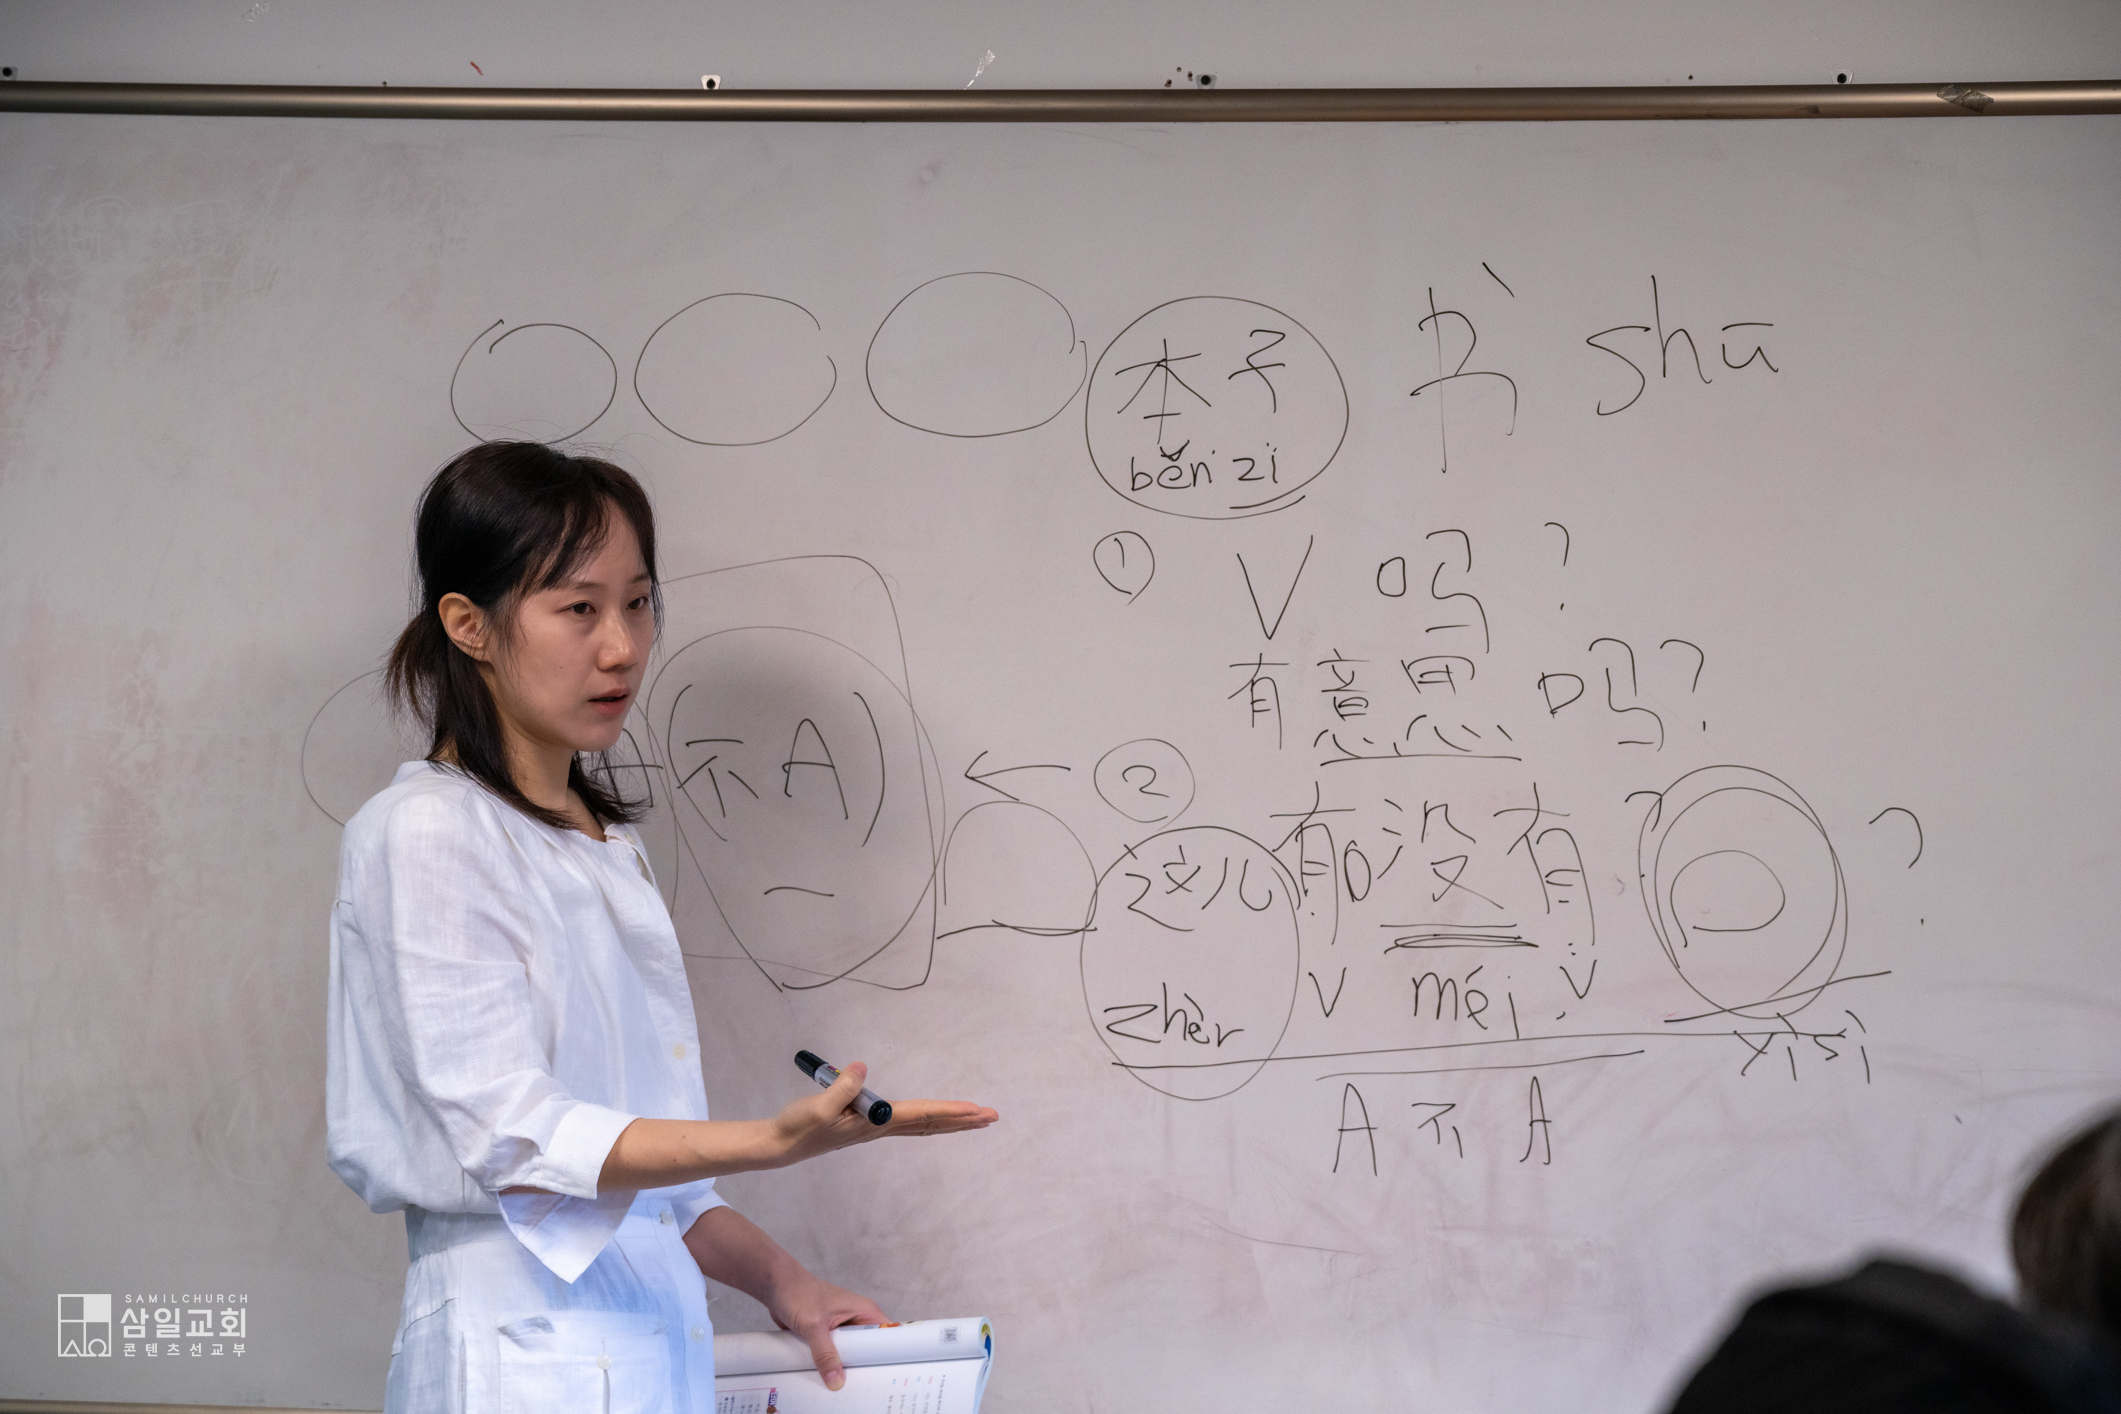 本子 书 shū
běn zi
① V 吗?
有意思 吗?
(不A) ← ②
这儿 有 没 有 ? ?
zhèr V méi V
yì si
A 不 A
SAMILCHURCH
삼일교회
콘텐츠선교부